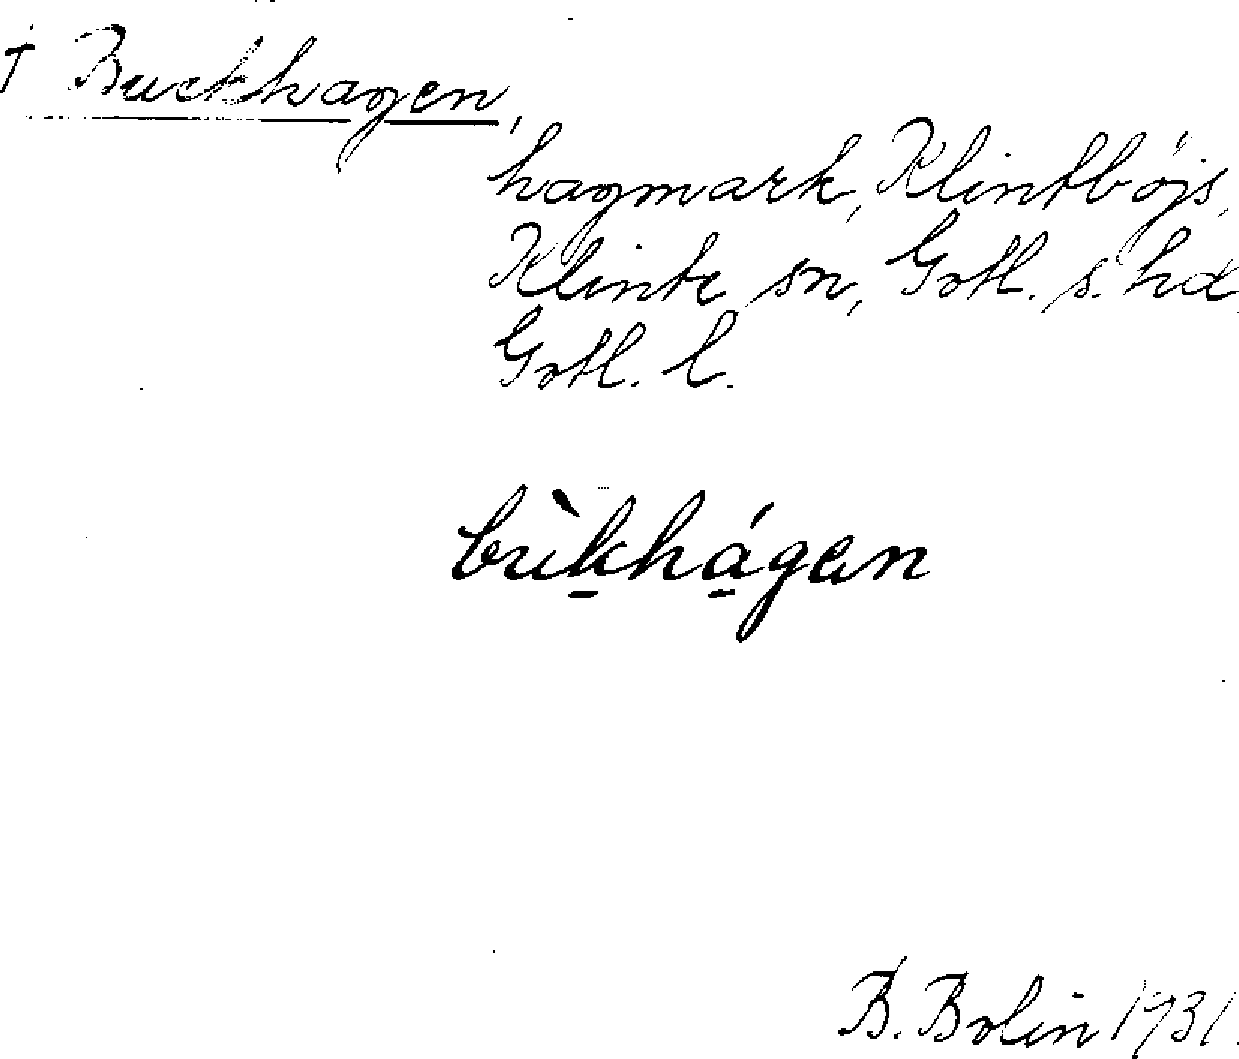 † Buckhagen,
hagmark, Klintbójs,
Klinte sn, Gotl. s. hd,
Gotl. l.
bùkhágen
B. Bolin 1931.